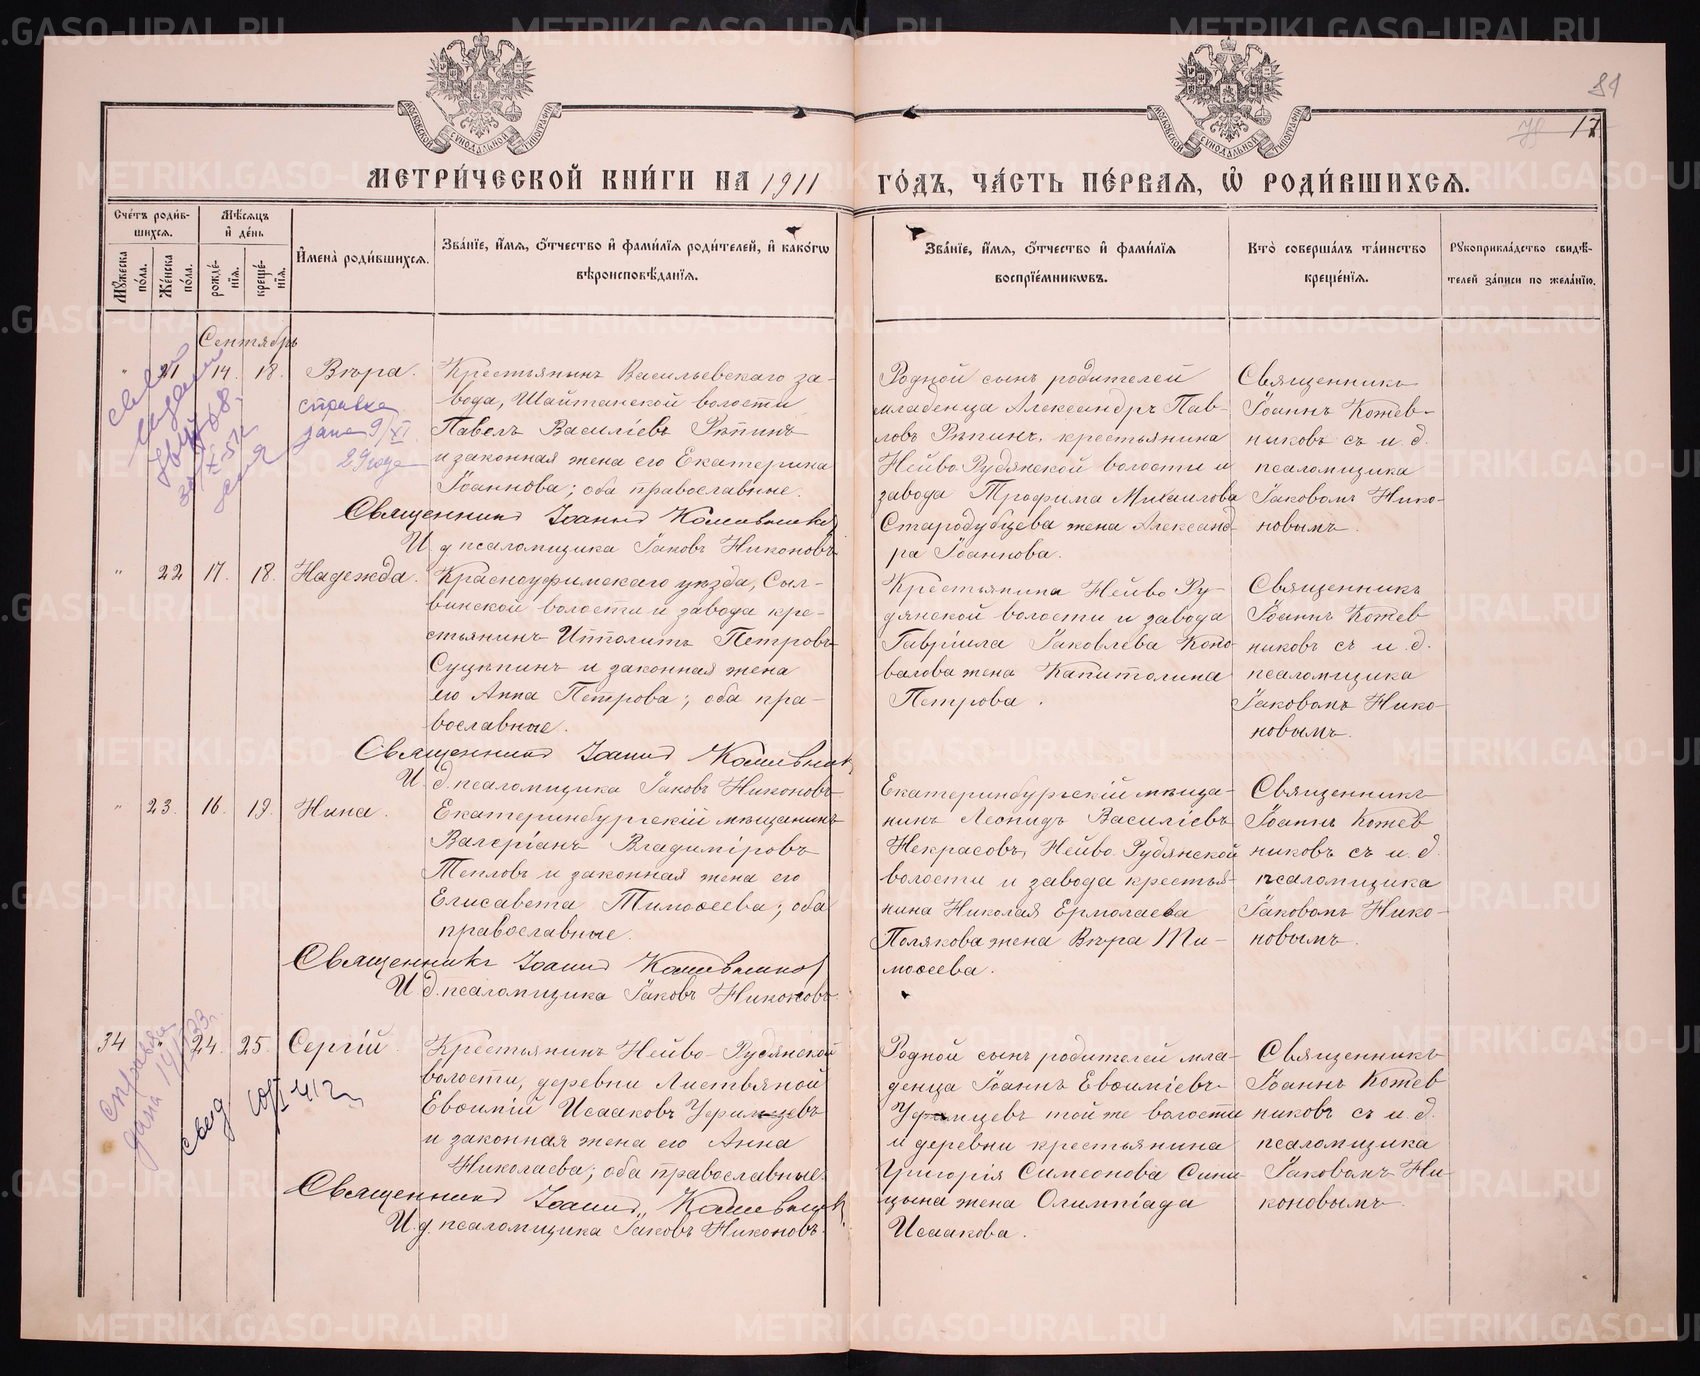 METRIKI.GASO-URAL.RU
81
17
МОСКОВСКОЙ СѴНОДАЛЬНОЙ ТИПОГРАФІИ
МОСКОВСКОЙ СѴНОДАЛЬНОЙ ТИПОГРАФІИ
МЕТРИ́ЧЕСКОЙ КНИ́ГИ НА 1911 ГО́ДЪ, ЧА́СТЬ ПЕ́РВАѦ, Ѡ҆ РОДИ́ВШИХСѦ.
Сче́тъ роди́в-
шихсѧ.
Мѣ́сѧцъ
и҆ де́нь
Мꙋ́жеска
по́ла.
Же́нска
по́ла.
рожде́-
нїѧ.
креще́-
нїѧ.
И҆мена̀ роди́вшихсѧ.
Зва́нїе, и҆́мѧ, ѻ҆́тчество и҆ фами́лїѧ роди́телей, и҆ како́гѡ
вѣроисповѣ́данїѧ.
Зва́нїе, и҆́мѧ, ѻ҆́тчество и҆ фами́лїѧ
воспрїе́мникѡвъ.
Кто̀ соверша́лъ та́инство
креще́нїѧ.
Рꙋкоприкла́дство свидѣ́-
телей за́писи по жела́нїю.
Сентябрь
" 21 14. 18. Вѣра.
справка
дана 9/XI
29 года
Крестьянинъ Васильевскаго за-
вода, Шайтанской волости
Павелъ Василіевъ Рѣпинъ
и законная жена его Екатерина
Іоаннова; оба православные.
Священникъ Іоаннъ Кожевниковъ
И д псаломщика Іаковъ Никоновъ
Родной сынъ родителей
младенца Александръ Пав-
ловъ Рѣпинъ, крестьянина
Нейво Рудянской волости и
завода Трофима Михаилова
Стародубцева жена Александ-
ра Іоаннова.
Священникъ
Іоаннъ Кожев-
никовъ съ и. д.
псаломщика
Іаковомъ Нико-
новымъ.
" 22 17. 18. Надежда.
Красноуфимскаго уѣзда, Сыл-
винской волости и завода кре-
стьянинъ Ипполитъ Петровъ
Суцѣпинъ и законная жена
его Анна Петрова; оба пра-
вославные.
Священникъ Іоаннъ Кожевник
И. д. псаломщика Іаковъ Никоновъ
Крестьянина Нейво Ру-
дянской волости и завода
Гавріила Іаковлева Коно-
валова жена Капитолина
Петрова.
Священникъ
Іоаннъ Кожев
никовъ съ и. д.
псаломщика
Іаковомъ Нико-
новымъ.
" 23. 16. 19. Нина.
Екатеринбургскій мѣщанинъ
Валеріанъ Владиміровъ
Тепловъ и законная жена его
Елисавета Тимоѳеева; оба
православные.
Священникъ Іоаннъ Кожевников
И д. псаломщика Іаковъ Никоновъ
Екатеринбургскій мѣща-
нинъ Леонидъ Василіевъ
Некрасовъ, Нейво. Рудянской
волости и завода крестья-
нина Николая Ермолаева
Полякова жена Вѣра Ти-
моѳеева.
Священникъ
Іоаннъ Кожев
никовъ съ и. д.
псаломщика
Іаковомъ Нико-
новымъ.
34 " 24. 25. Сергій
справка
дана
свид
Крестьянинъ Нейво-Рудянской
волости, деревни Листвяной
Евѳимій Исааковъ Уфимцевъ
и законная жена его Анна
Николаева; оба православные.
Священникъ Іоаннъ Кожевник
И. д. псаломщика Іаковъ Никоновъ.
Родной сынъ родителей мла-
денца Іоаннъ Евѳиміевъ
Уфимцевъ той же волости
и деревни крестьянина
Григорія Симеонова Сини
цына жена Олимпіада
Исаакова.
Священникъ
Іоаннъ Кожев
никовъ съ и. д.
псаломщика
Іаковомъ Ни-
коновымъ.